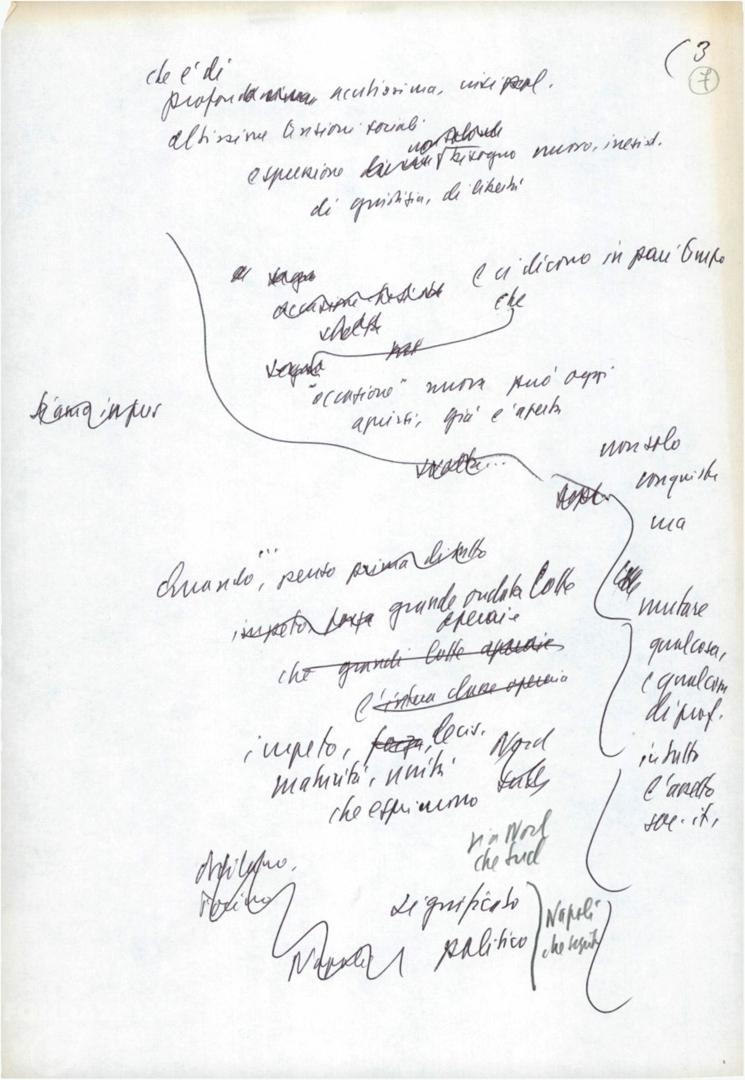 (3
7
che è di
profondissima, acutissima, crisi pol.
altissime tensioni sociali
non solo
espressione bisogno nuovo, inesist.
di giustizia, di libertà
e ci dicono in pari tempo
che
"occasione" nuova può oggi
aprirsi, già è aperta
non solo
conquiste
ma
mutare
qualcosa,
e qualcosa
di prof.
in tutto
l'assetto
soc. it.
Quando, penso prima di tutto
impeto, forza grande ondata lotte
operaie
che grandi lotte operaie
e intera classe operaia
impeto, forza, decis.
maturità, unità
che esprimono
Nord
sia Nord
che Sud
Milano,
Torino
Napoli
significato
politico
Napoli